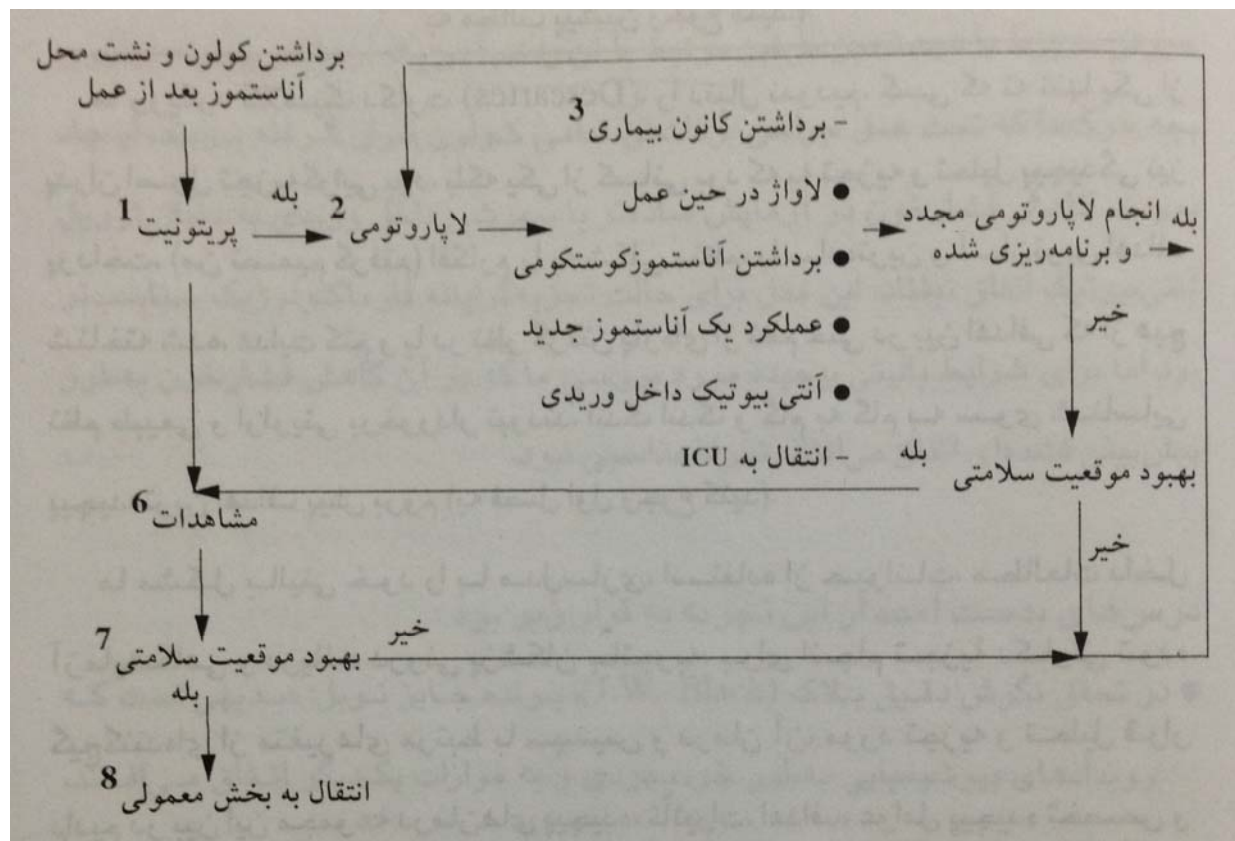 برداشتن کولون و نشت محل
آناستموز بعد از عمل
1 پریتونیت
بله
2 لاپاروتومی
3
- برداشتن کانون بیماری
● لاواژ در حین عمل
● برداشتن آناستموزکوستکومی
● عملکرد یک آناستموز جدید
● آنتی بیوتیک داخل وریدی
- انتقال به ICU
انجام لاپاروتومی مجدد
و برنامه‌ریزی شده
بله
خیر
بهبود موقعیت سلامتی
بله
خیر
6 مشاهدات
7 بهبود موقعیت سلامتی
خیر
بله
8 انتقال به بخش معمولی